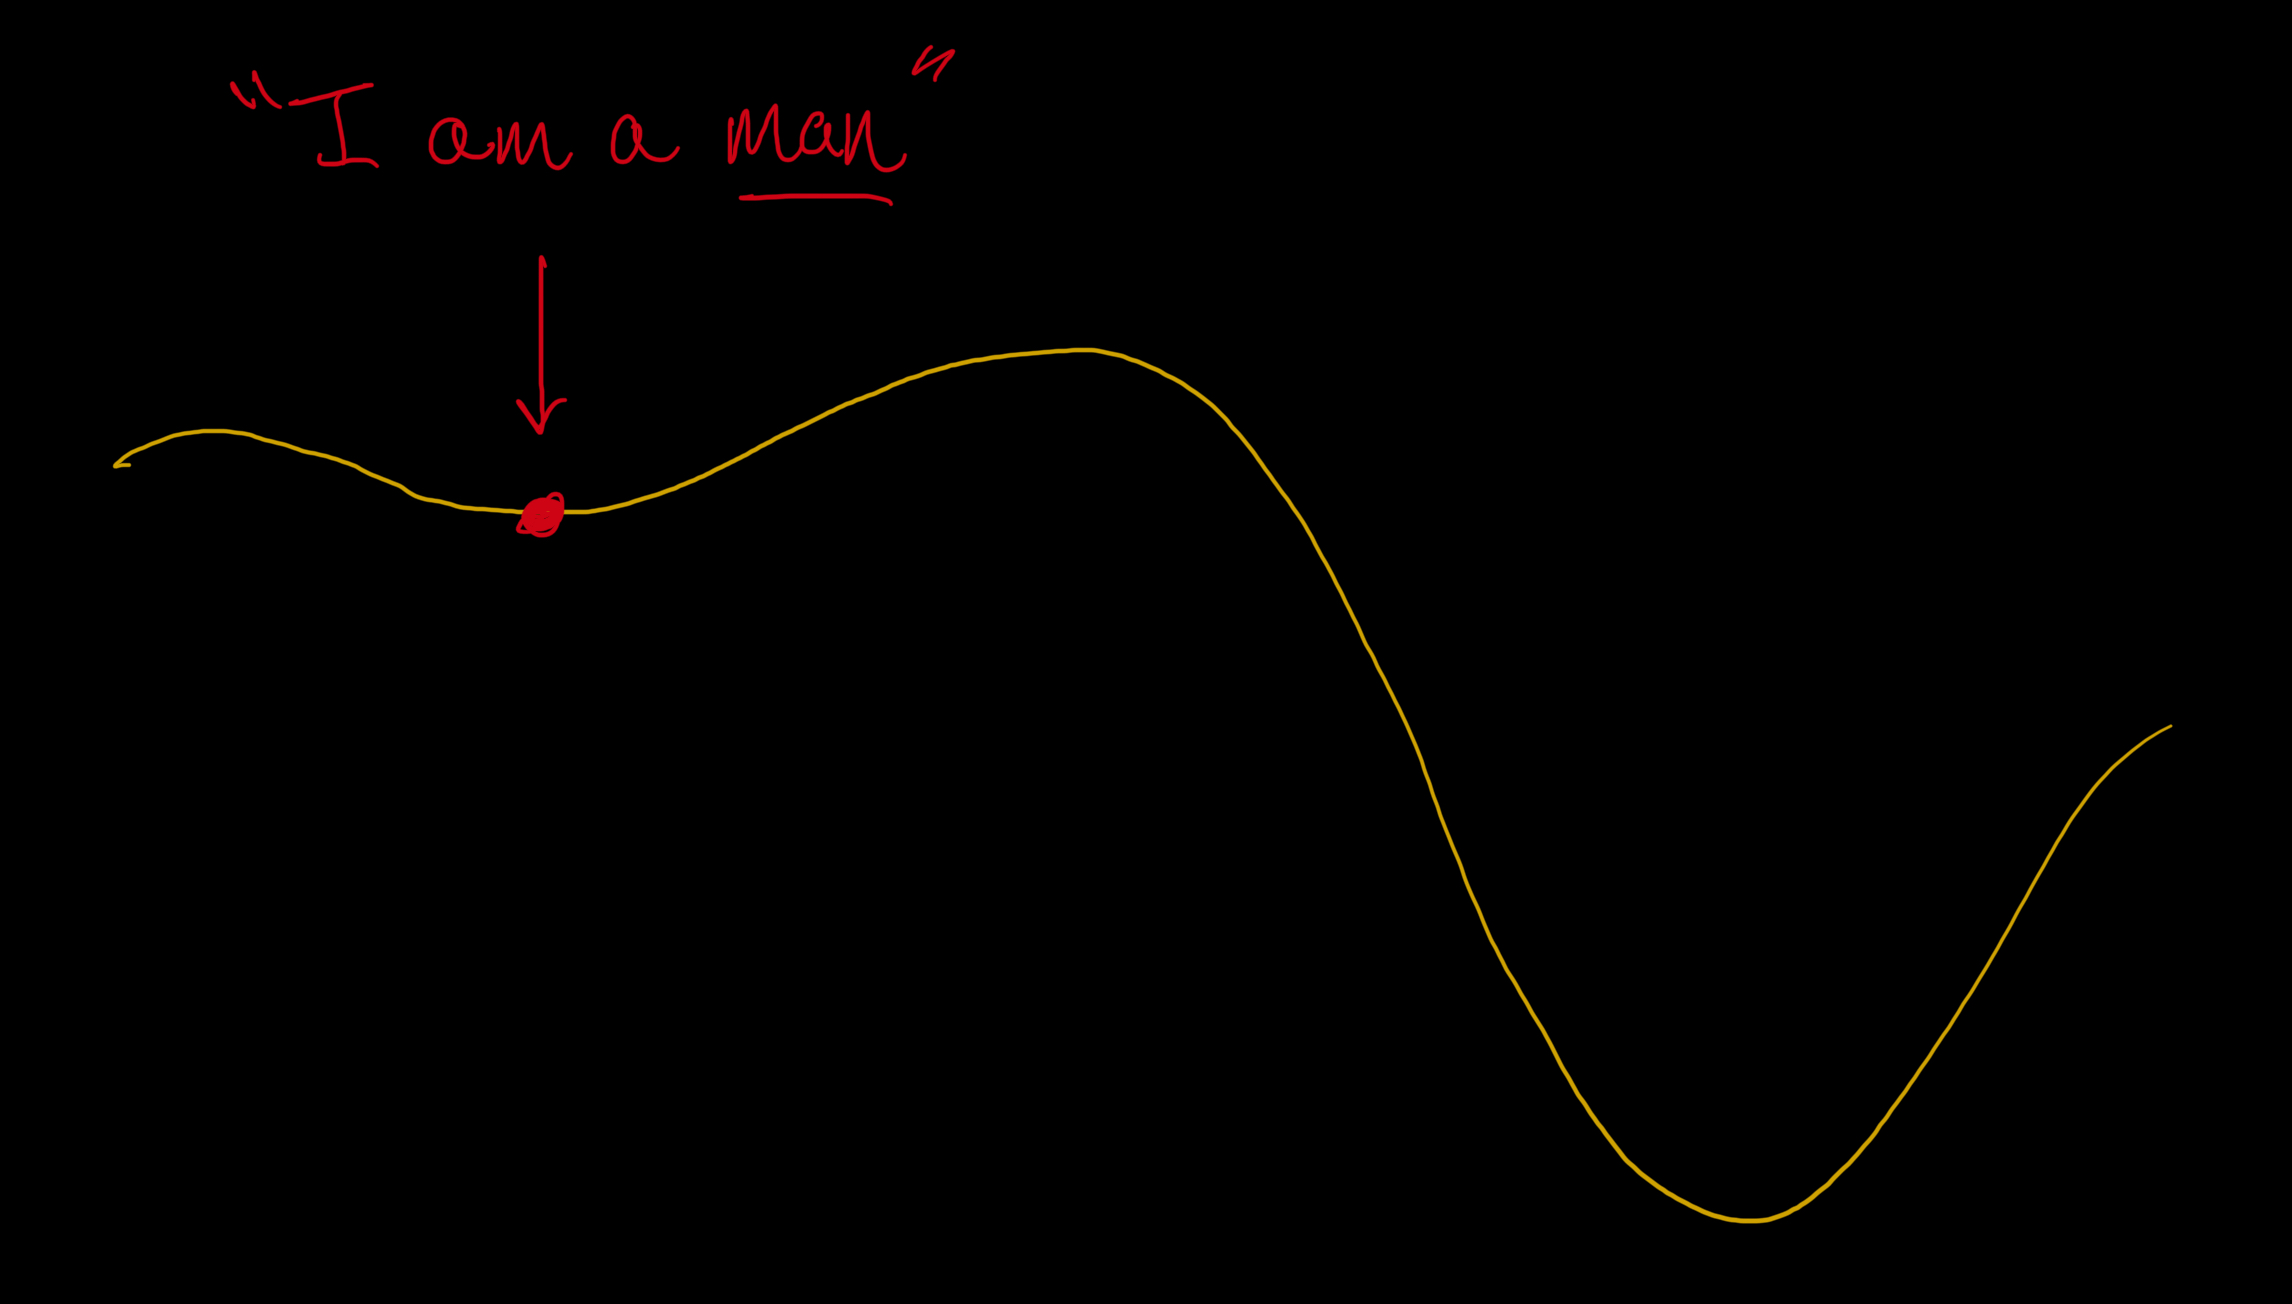 "I am a man"